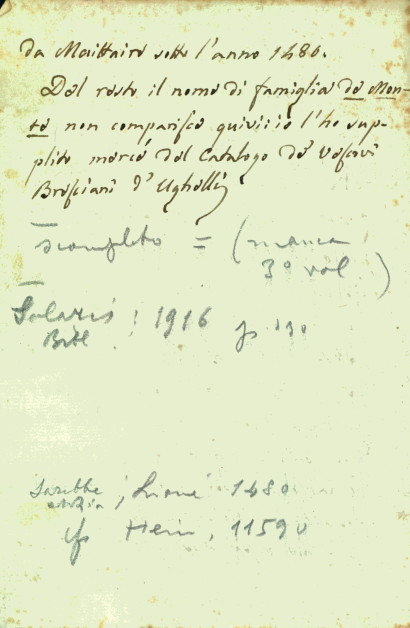 da Maittaire sotto l'anno 1480.
Del resto il nome di famiglia de Mon-
te non comparisce quivi: io l'ho sup-
plito mercé del Catalogo de' Vescovi
Bresciani d'Ughelli
scompleto = (manca
3° vol )
Solaris
Bibl : 1916
Sarebbe
1480
cfr Hein, 11590